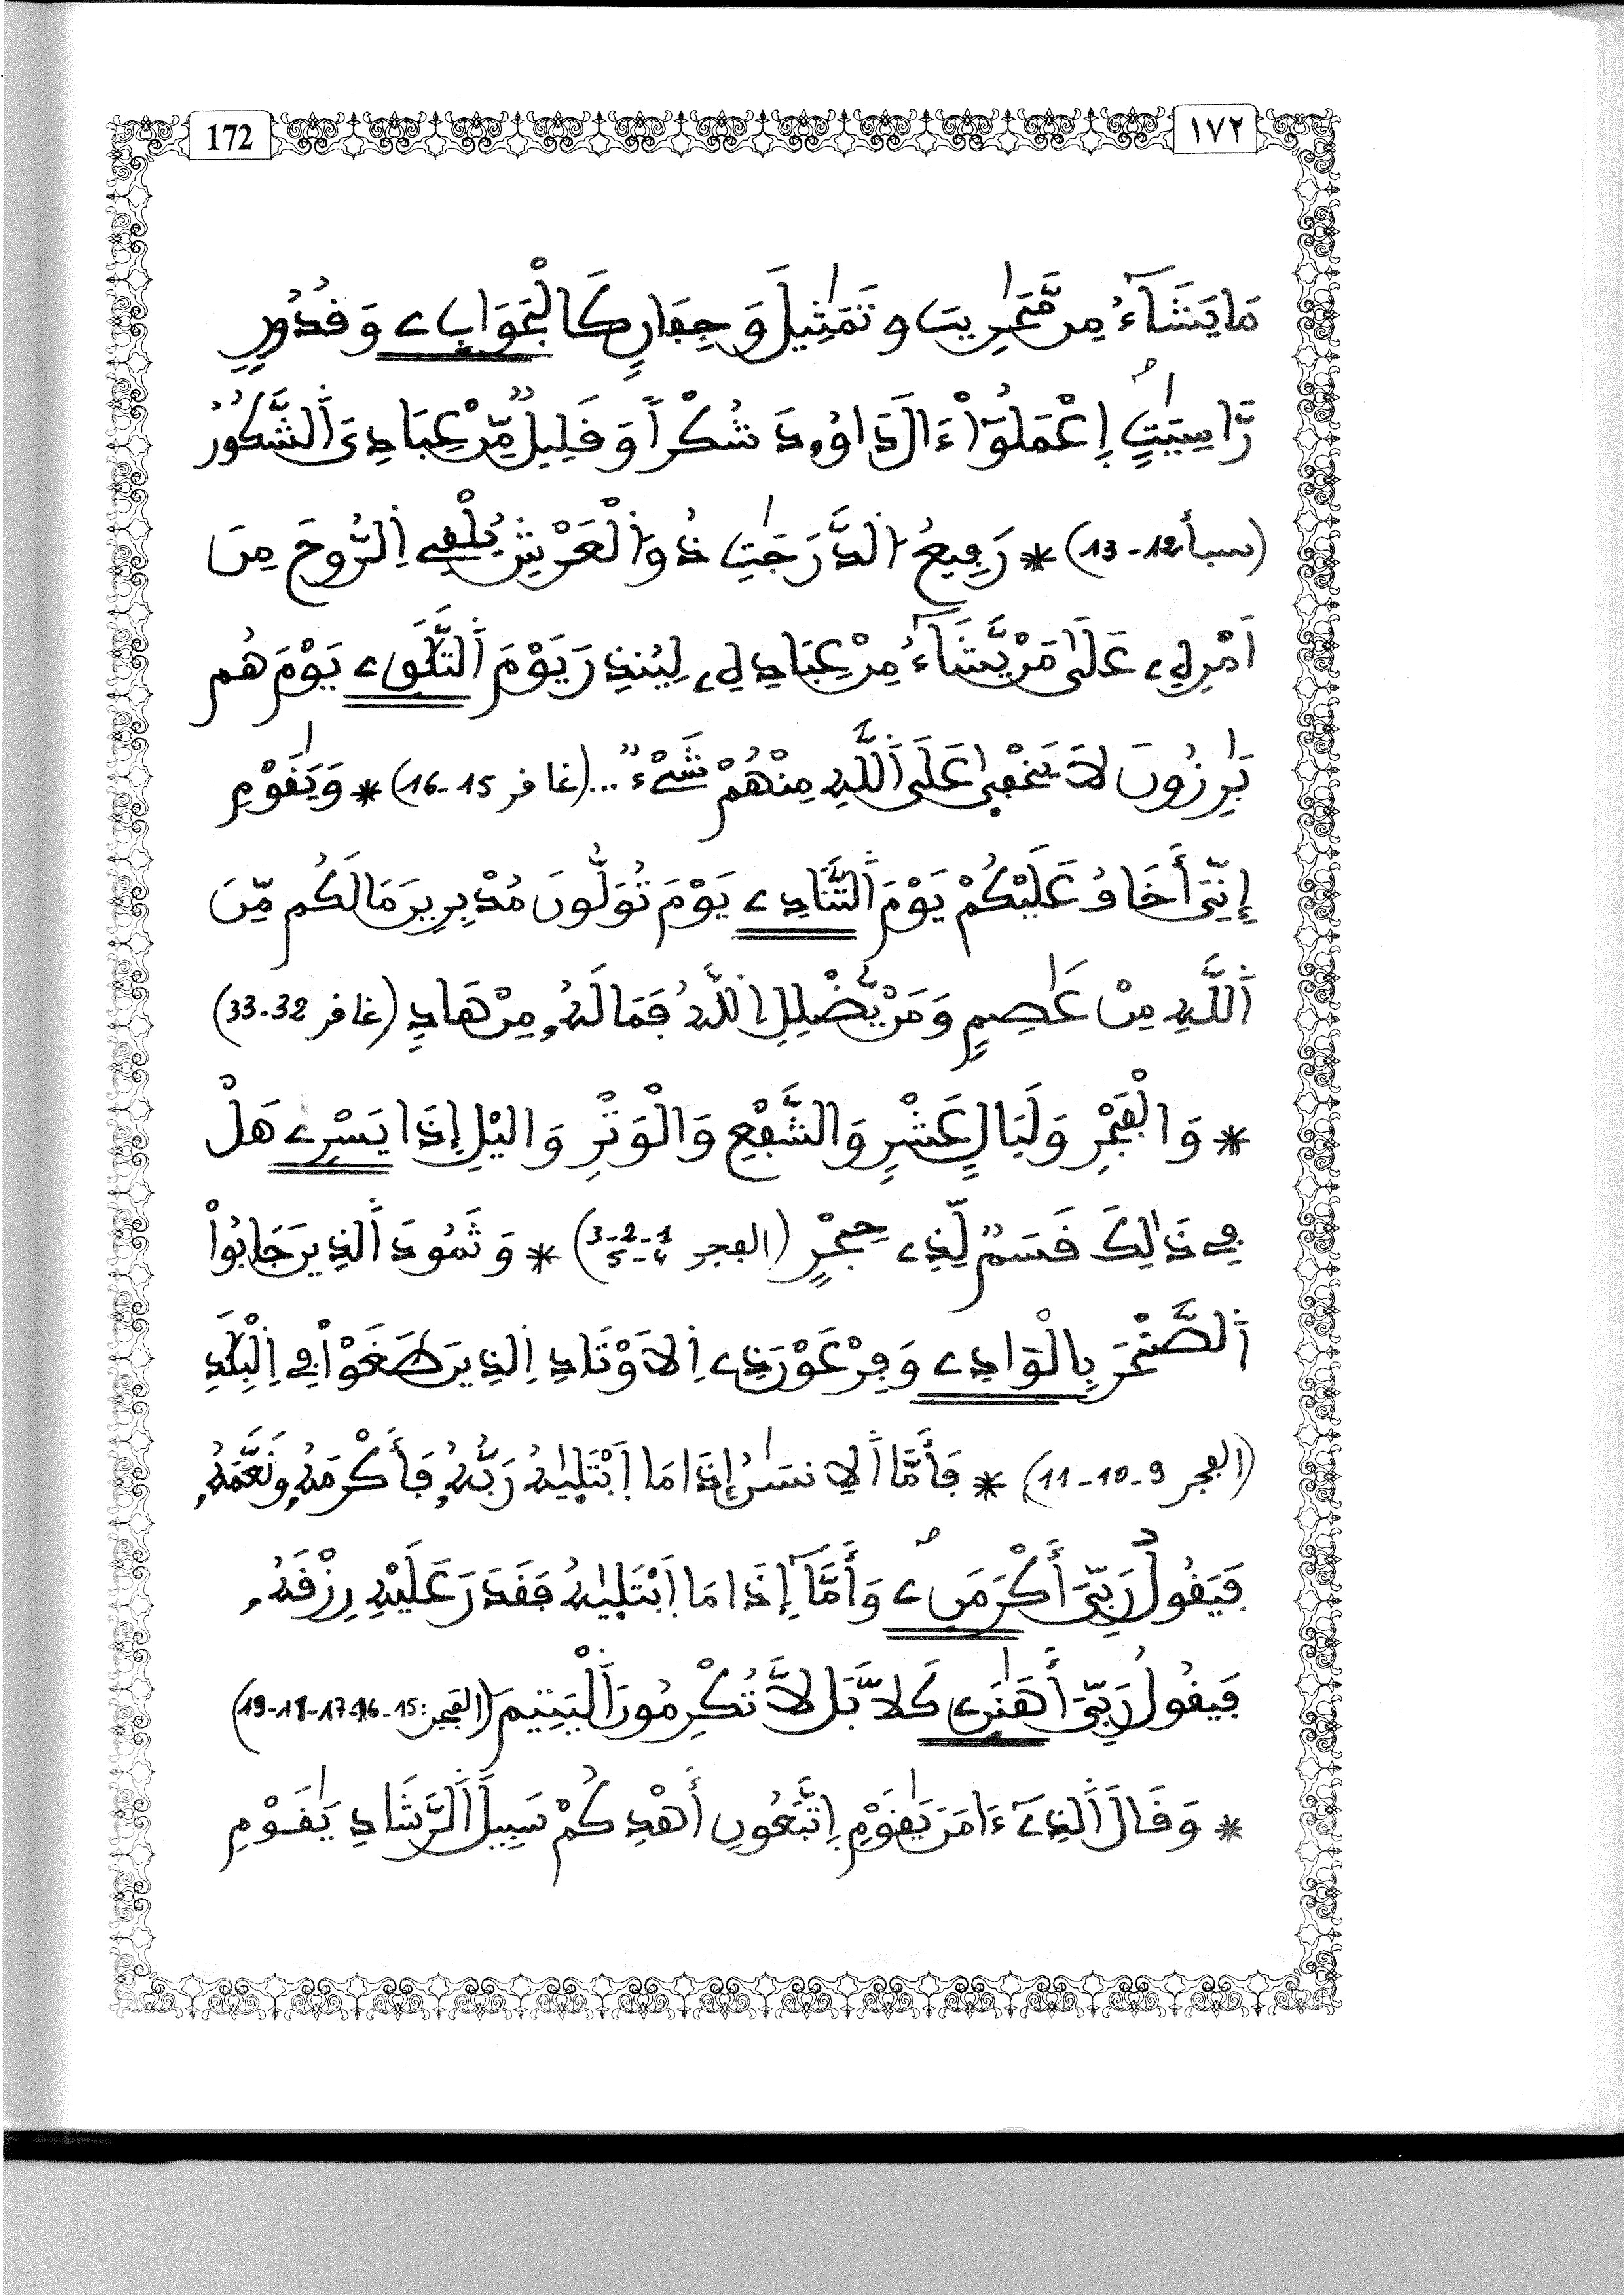 172
١٧٢
مَا يَشَآءُ مِن مَّحَٰرِيبَ وتَمَٰثِيلَ وَجِفَانٍ كَالْجَوَابِۦ وَقُدُورٍ
رَّاسِيَٰتٍۖ اِعْمَلُوٓاْ ءَالَ دَاوُۥدَ شُكْراً وَقَلِيلٌ مِّنْ عِبَادِيَ اَلشَّكُورُ
(سبأ 12-13) * رَفِيعُ اُلدَّرَجَٰتِ ذُو اَلْعَرْشِ يُلْقِے اِلرُّوحَ مِنَ
اَمْرِهِۦ عَلَىٰ مَنْ يَّشَآءُ مِنْ عِبَادِهِۦ لِيُنذِرَ يَوْمَ اَلتَّلَٰقِۦ يَوْمَ هُم
بَٰرِزُونَ لاَ يَخْفَىٰ عَلَى اَللَّهِ مِنْهُمْ شَےْءٌ...(غافر 15-16) * وَيَٰقَوْمِ
إِنِّيَ أَخَافُ عَلَيْكُمْ يَوْمَ اَلتَّنَادِۦ يَوْمَ تُوَلُّونَ مُدْبِرِينَ مَا لَكُم مِّنَ
اَللَّهِ مِنْ عَٰصِمٍ وَمَنْ يُّضْلِلِ اِللَّهُ فَمَا لَهُۥ مِنْ هَادٍ (غافر 32-33)
* وَالْفَجْرِ وَلَيَالٍ عَشْرٍ وَالشَّفْعِ وَالْوَتْرِ وَاليْلِ إِذَا يَسْرِۦ هَلْ
فِے ذَٰلِكَ قَسَمٌ لِّذِے حِجْرٍ (الفجر 1-2-3-4-5) * وَثَمُودَ اَلذِينَ جَابُواْ
اَلصَّخْرَ بِالْوَادِۦ وَفِرْعَوْنَ ذِے اِلاَوْتَادِ اِلذِينَ طَغَوْاْ فِے اِلْبِلَٰدِ
(الفجر 9-10-11) * فَأَمَّا اَلاِنسَٰنُ إِذَا مَا اَبْتَلَيٰهُ رَبُّهُۥ فَأَكْرَمَهُۥ وَنَعَّمَهُۥ
فَيَقُولُ رَبِّيَ أَكْرَمَنِۦۖ وَأَمَّآ إِذَا مَا اَبْتَلَيٰهُ فَقَدَرَ عَلَيْهِ رِزْقَهُۥ
فَيَقُولُ رَبِّيَ أَهَٰنَنِۦ كَلاَّ بَل لاَّ تُكْرِمُونَ اَلْيَتِيمَ (الفجر: 15-16-17-18-19)
* وَقَالَ اَلذِےٓ ءَامَنَ يَٰقَوْمِ اِتَّبِعُونِ أَهْدِكُمْ سَبِيلَ اَلرَّشَادِ يَٰقَوْمِ